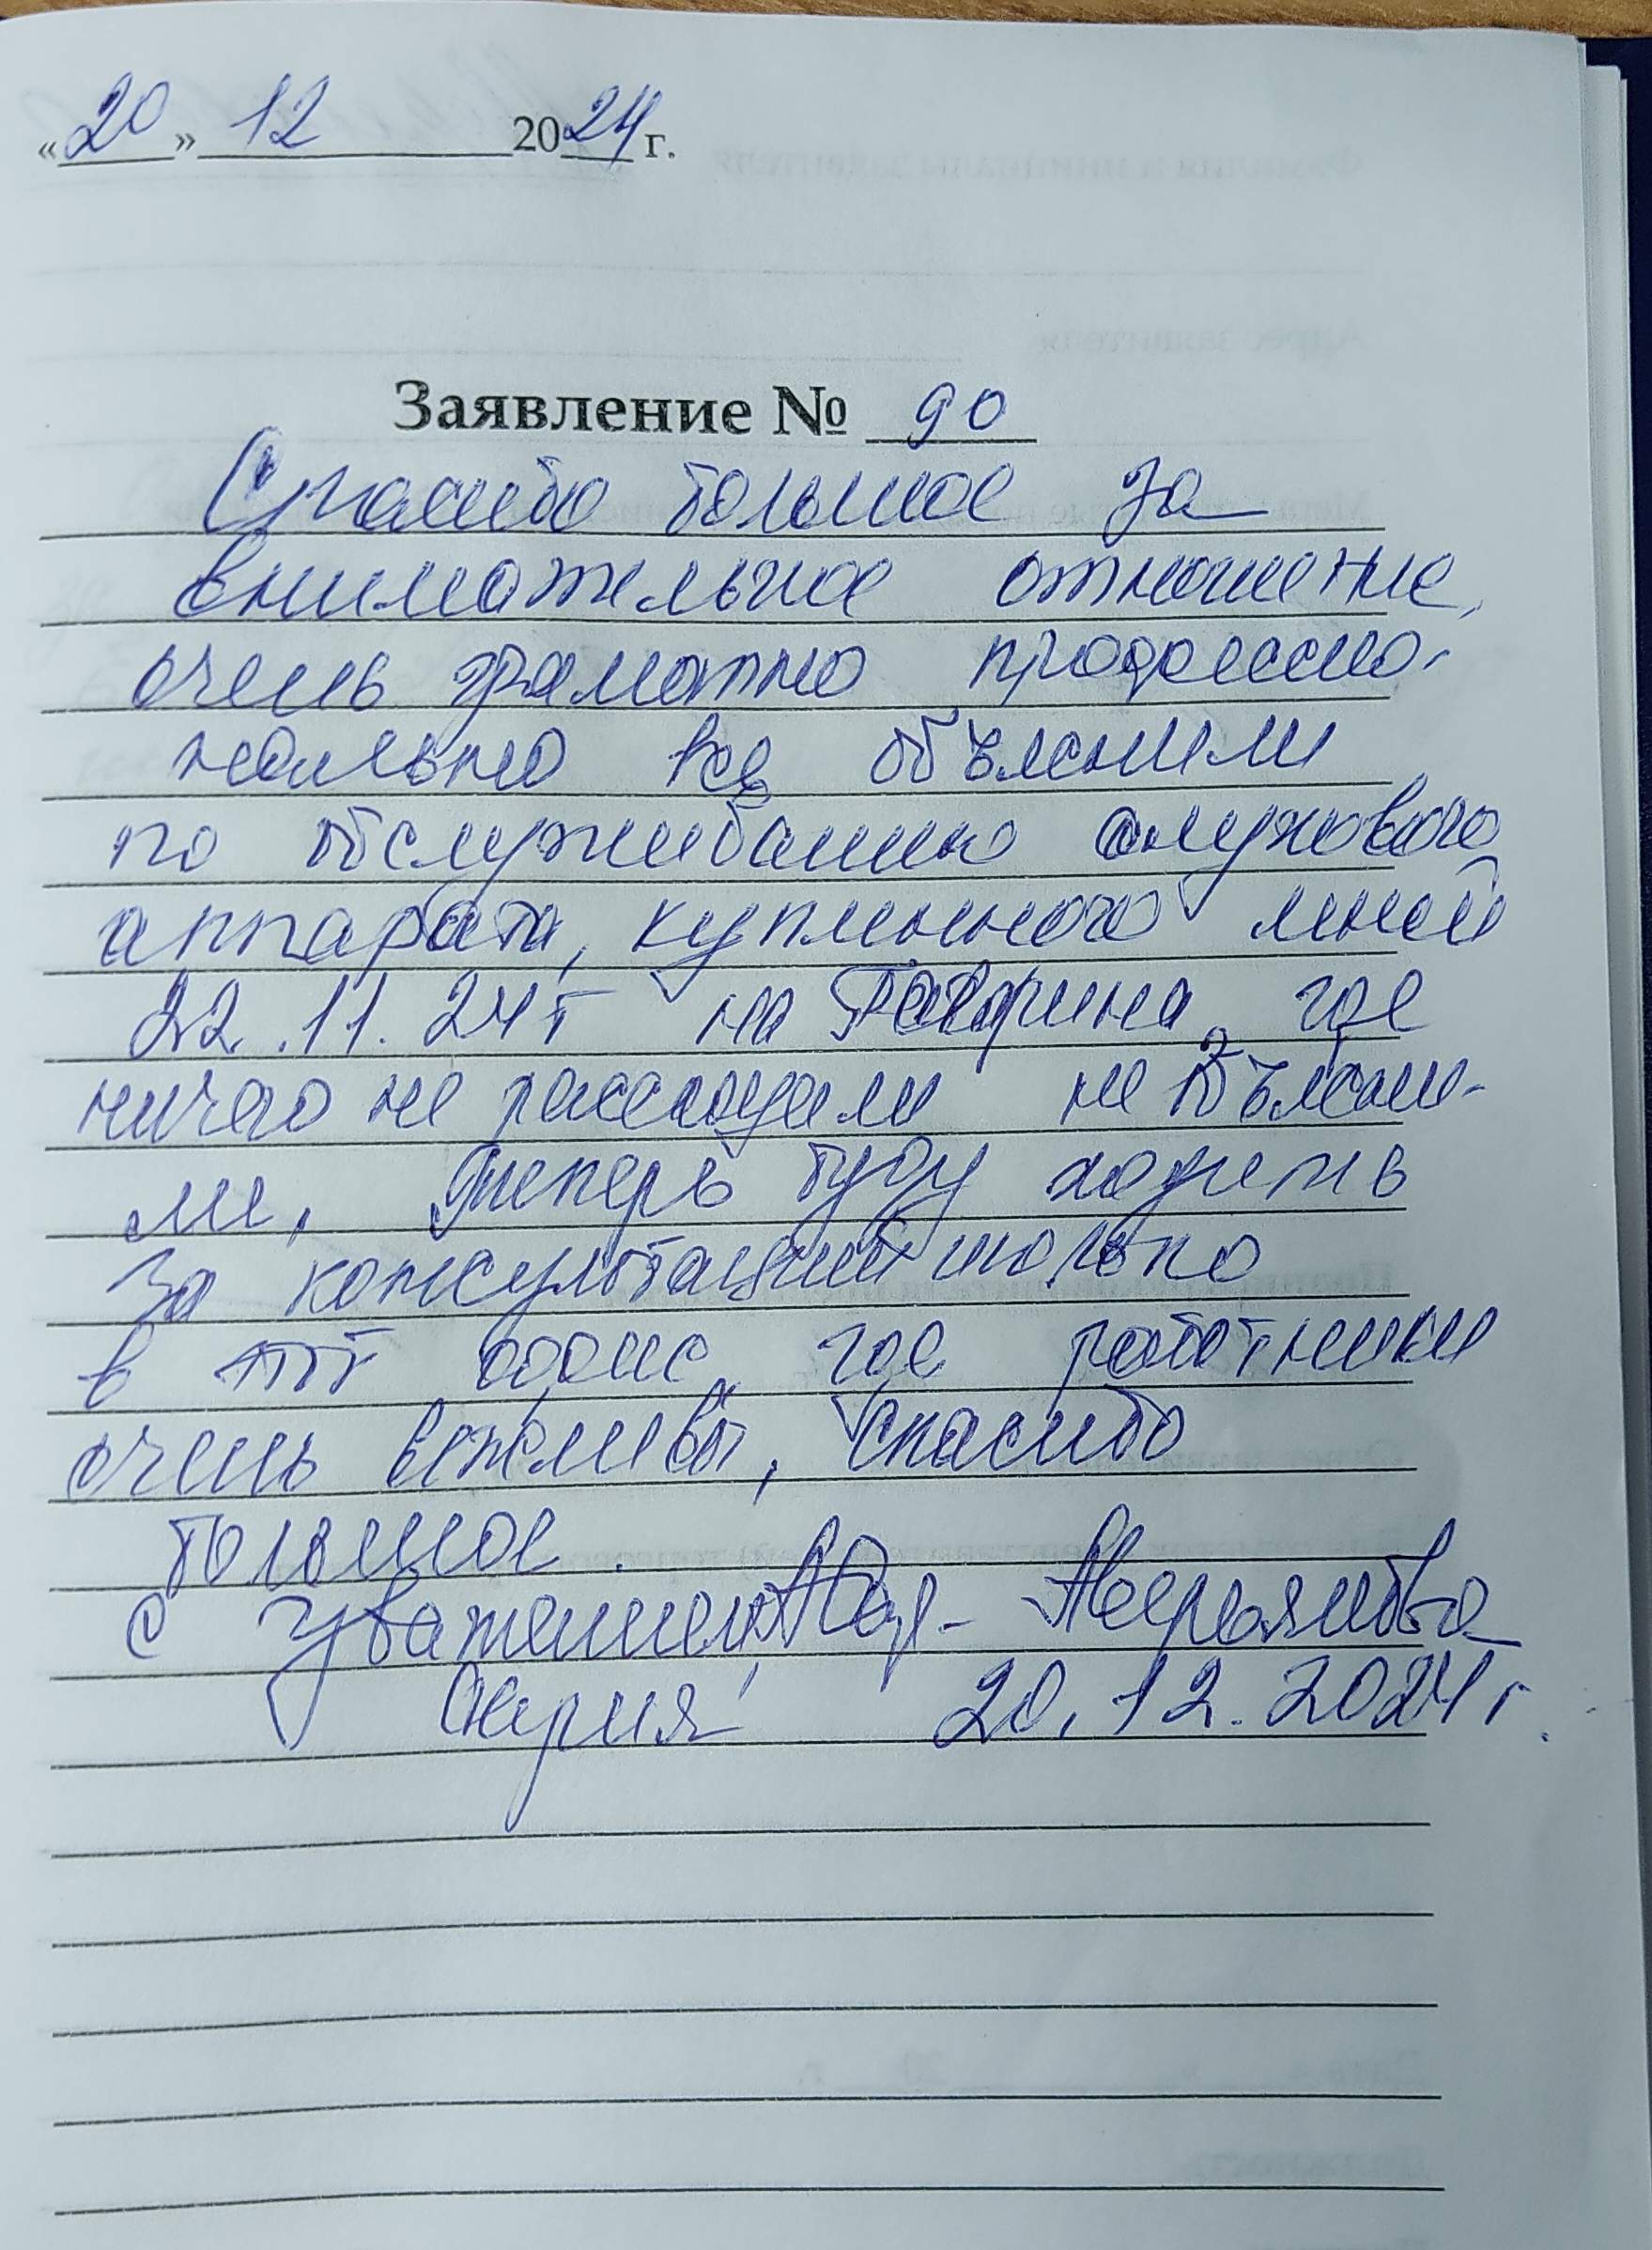 «20» 12 2024 г.
Заявление № 90
Спасибо большое за
внимательное отношение,
очень грамотно профессио-
нально все объяснили
по обслуживанию слухового
аппарата, купленного мной
22.11.24г на Гагарина, где
ничего не рассказали не объясни-
ли, теперь буду ходить
за консультацией только
в этот офис, где работники
очень вежливы, спасибо
большое.
с уважением
20.12.2024г.